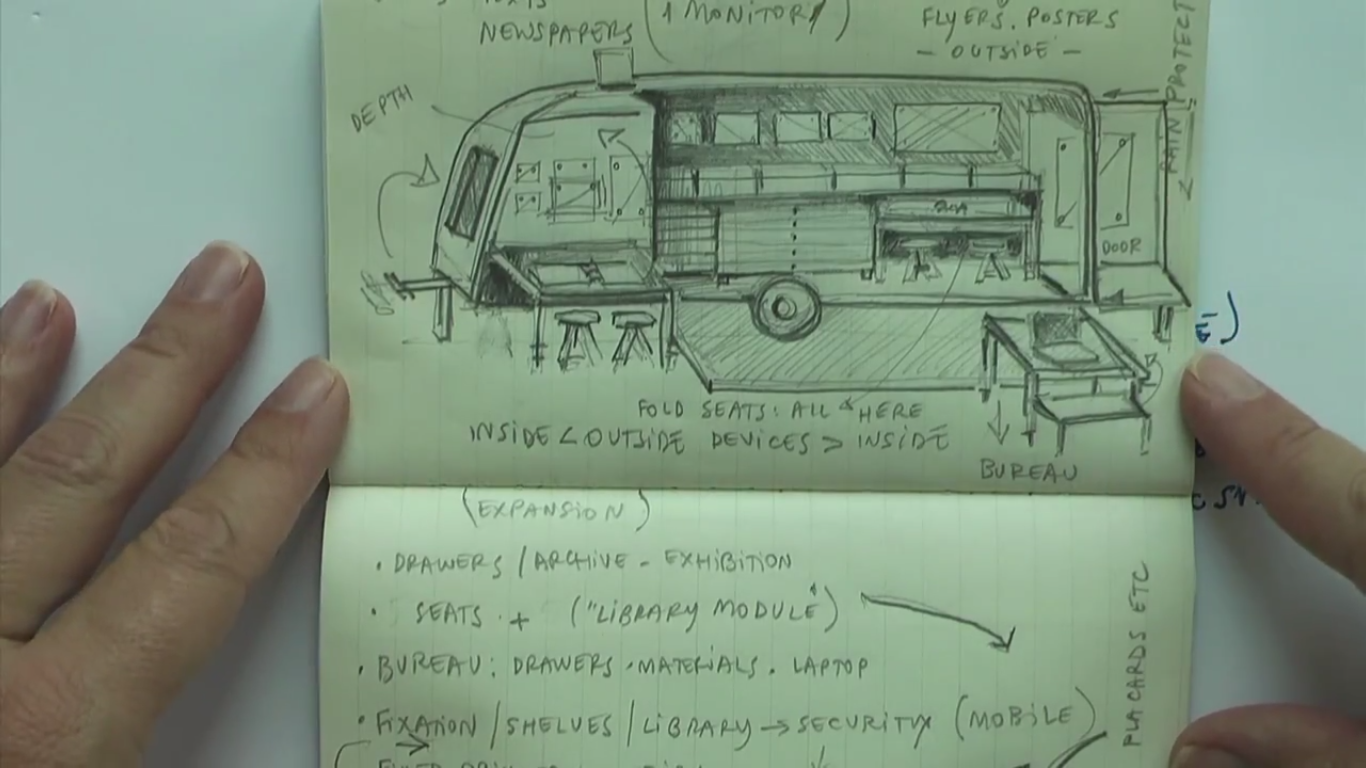 NEWSPAPERS
(1 MONITOR)
FLYERS. POSTERS
- OUTSIDE -
PROTECT
RAIN
DEPTH
DOOR
FOLD SEATS: ALL HERE
INSIDE < OUTSIDE DEVICES > INSIDE
BUREAU
(EXPANSION)
• DRAWERS / ARCHIVE - EXHIBITION
• SEATS + ("LIBRARY MODULE")
• BUREAU: DRAWERS · MATERIALS . LAPTOP
• FIXATION / SHELVES / LIBRARY → SECURITY (MOBILE)
PLACARDS ETC